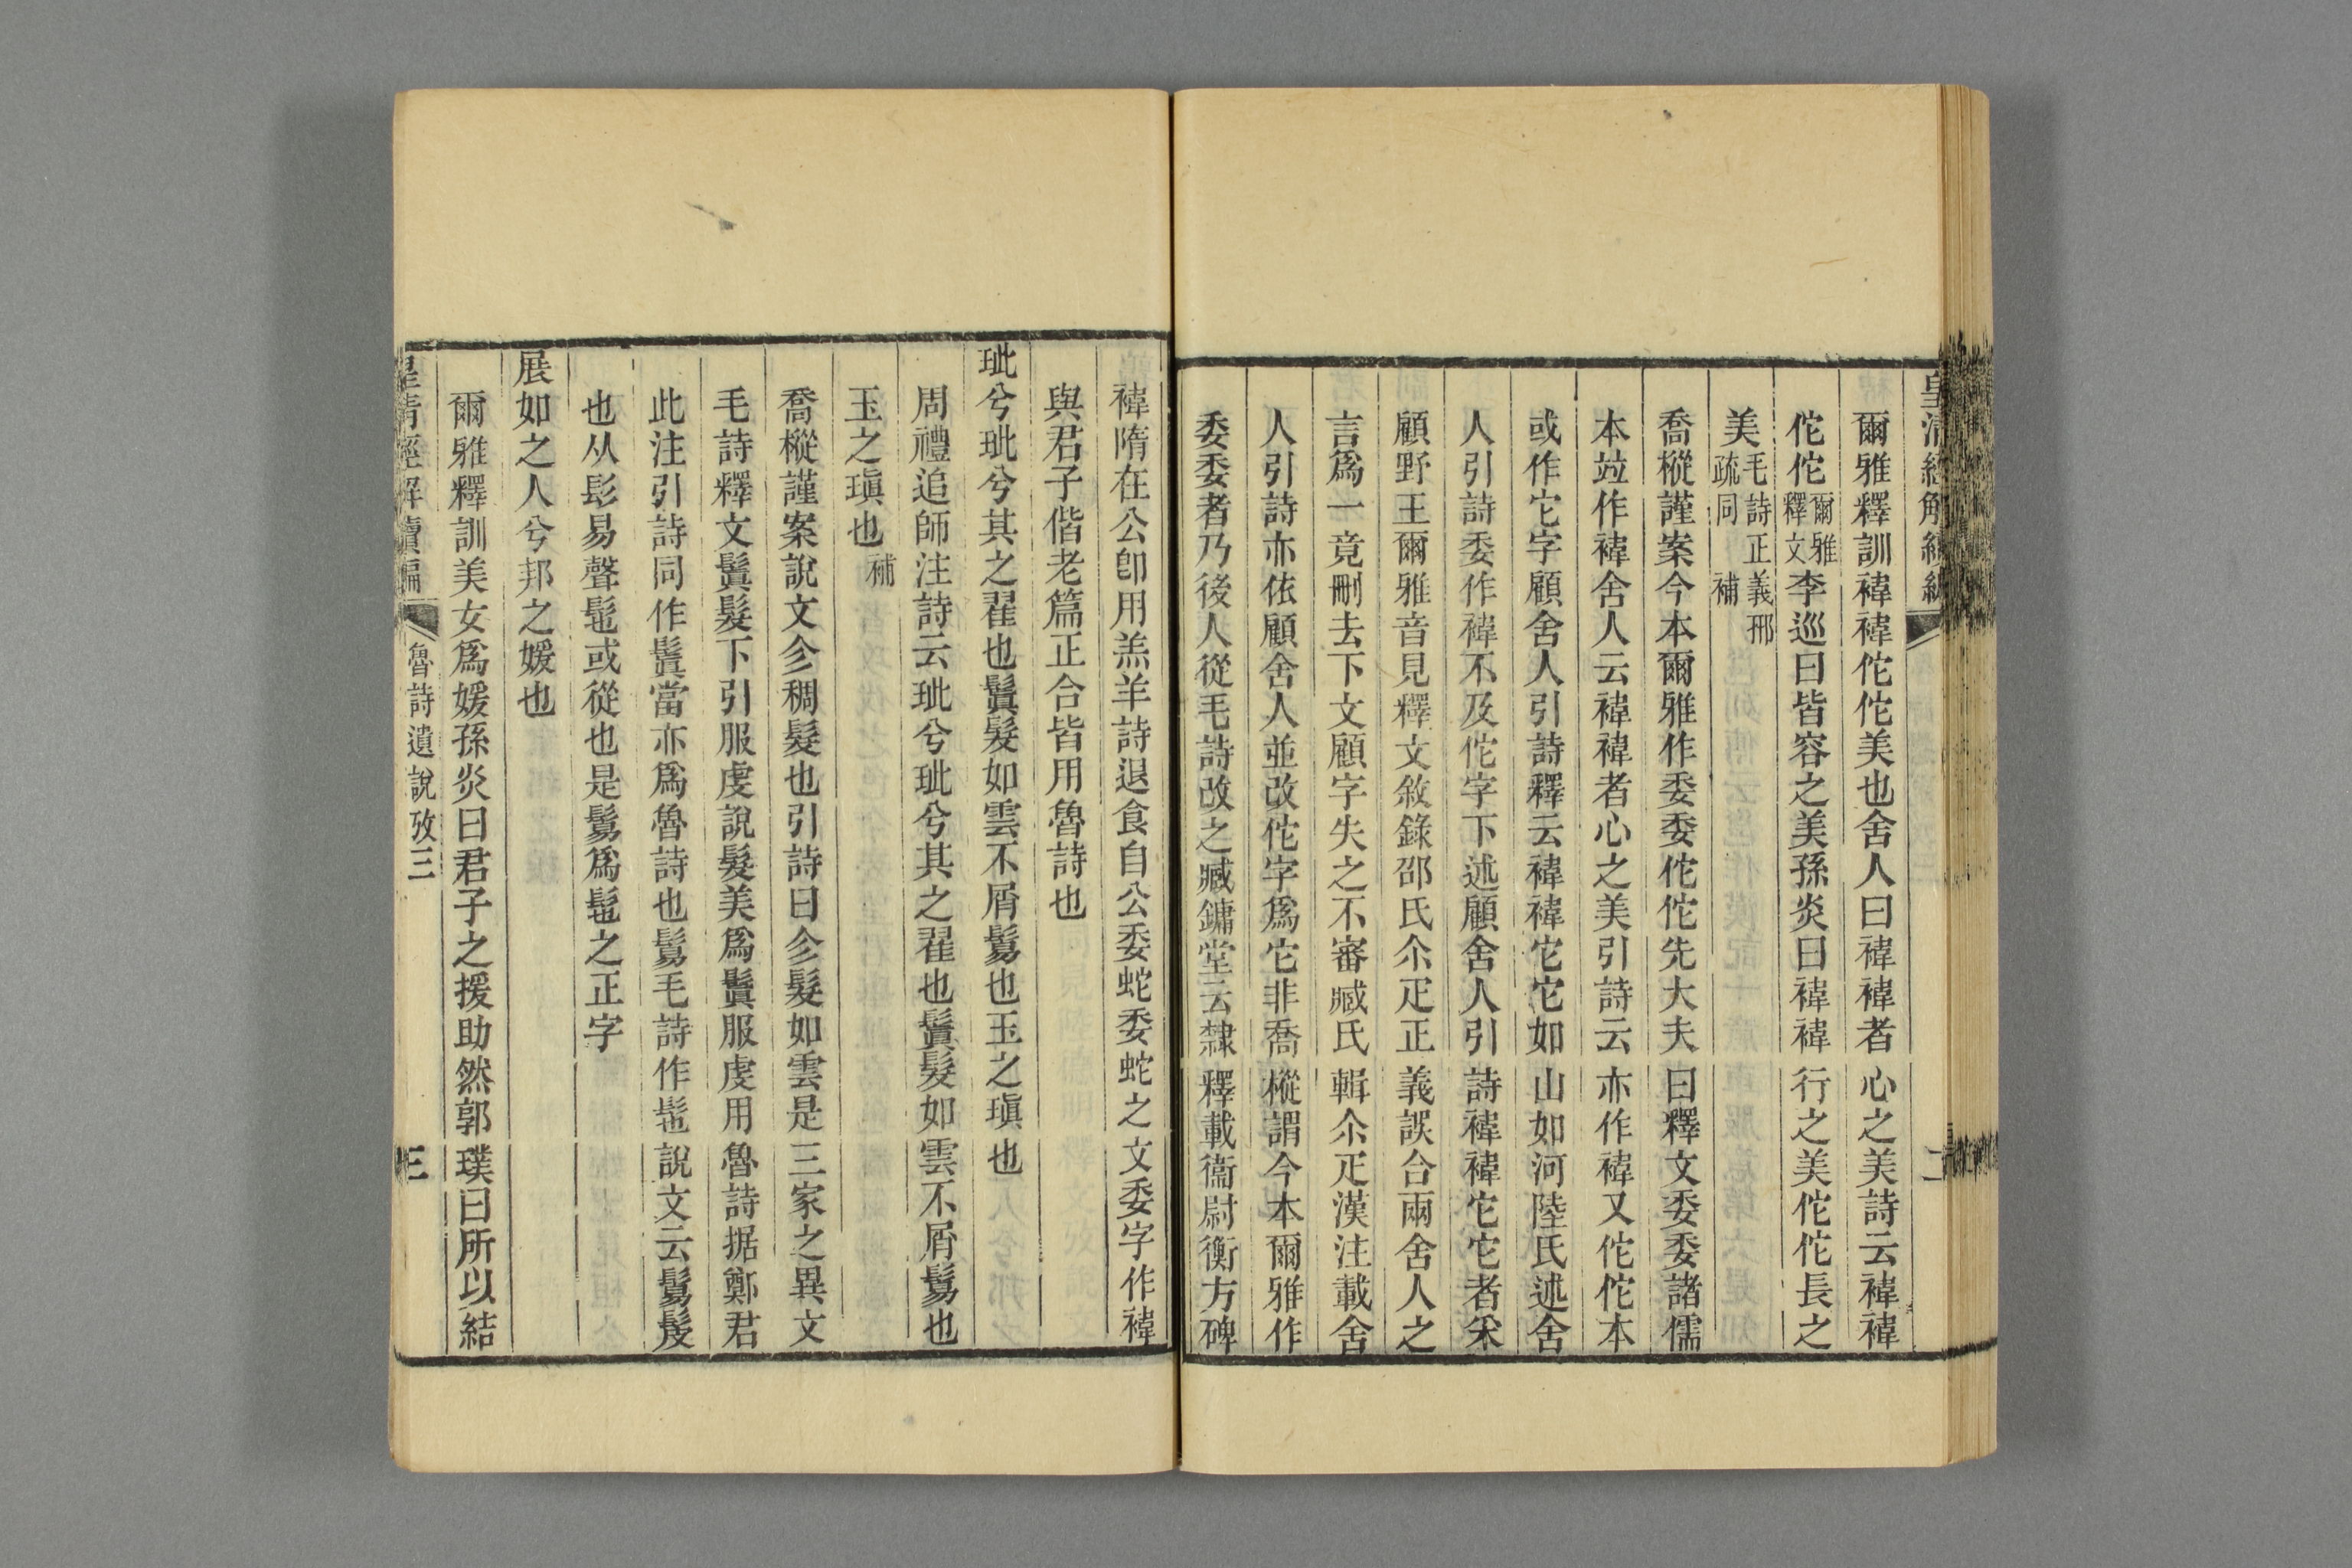 爾雅釋訓褘褘佗佗美也舍人曰褘褘者心之美詩云褘褘
佗佗爾雅釋文李巡曰皆容之美孫炎曰褘褘行之美佗佗長之
美毛詩正義邢疏同補
喬樅謹案今本爾雅作委委佗佗先大夫曰釋文委委諸儒
本竝作褘舍人云褘褘者心之美引詩云亦作褘又佗佗本
或作它字顧舍人引詩釋云褘褘它它如山如河陸氏述舍
人引詩委作褘不及佗字下述顧舍人引詩褘褘它它者寀
顧野王爾雅音見釋文敘錄邵氏尒疋正義誤合兩舍人之
言爲一竟刪去下文顧字失之不審臧氏輯尒疋漢注載舍
人引詩亦依顧舍人並改佗字爲它非喬樅謂今本爾雅作
委委者乃後人從毛詩改之臧鏞堂云隸釋載衞尉衡方碑
褘隋在公卽用羔羊詩退食自公委蛇委蛇之文委字作褘
與君子偕老篇正合皆用魯詩也
玼兮玼兮其之翟也鬒髮如雲不屑鬄也玉之瑱也
周禮追師注詩云玼兮玼兮其之翟也鬒髮如雲不屑鬄也
玉之瑱也補
喬樅謹案說文㐱稠髮也引詩曰㐱髮如雲是三家之異文
毛詩釋文鬒髮下引服虔說髮美爲鬒服虔用魯詩据鄭君
此注引詩同作鬒當亦爲魯詩也鬄毛詩作髢說文云鬄髲
也从髟易聲髢或從也是鬄爲髢之正字
展如之人兮邦之媛也
爾雅釋訓美女爲媛孫炎曰君子之援助然郭璞曰所以結
皇清經解續編 魯詩遺說攷三 三